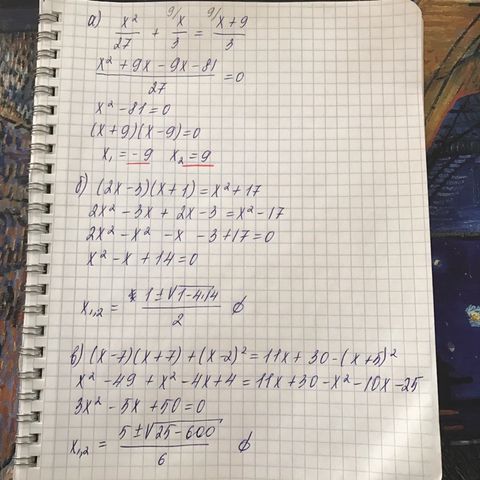 а) x²/27 + 9/x/3 = 9/x+9/3
(x² + 9x - 9x - 81)/27 = 0
x² - 81 = 0
(x+9)(x-9) = 0
x₁ = -9 x₂ = 9
б) (2x-3)(x+1) = x² + 17
2x² - 3x + 2x - 3 = x² - 17
2x² - x² - x - 3 + 17 = 0
x² - x + 14 = 0
x₁,₂ = (1 ± √(1-4·14))/2 ∅
в) (x-7)(x+7) + (x-2)² = 11x + 30 - (x+5)²
x² - 49 + x² - 4x + 4 = 11x + 30 - x² - 10x - 25
3x² - 5x + 50 = 0
x₁,₂ = (5 ± √(25-600))/6 ∅